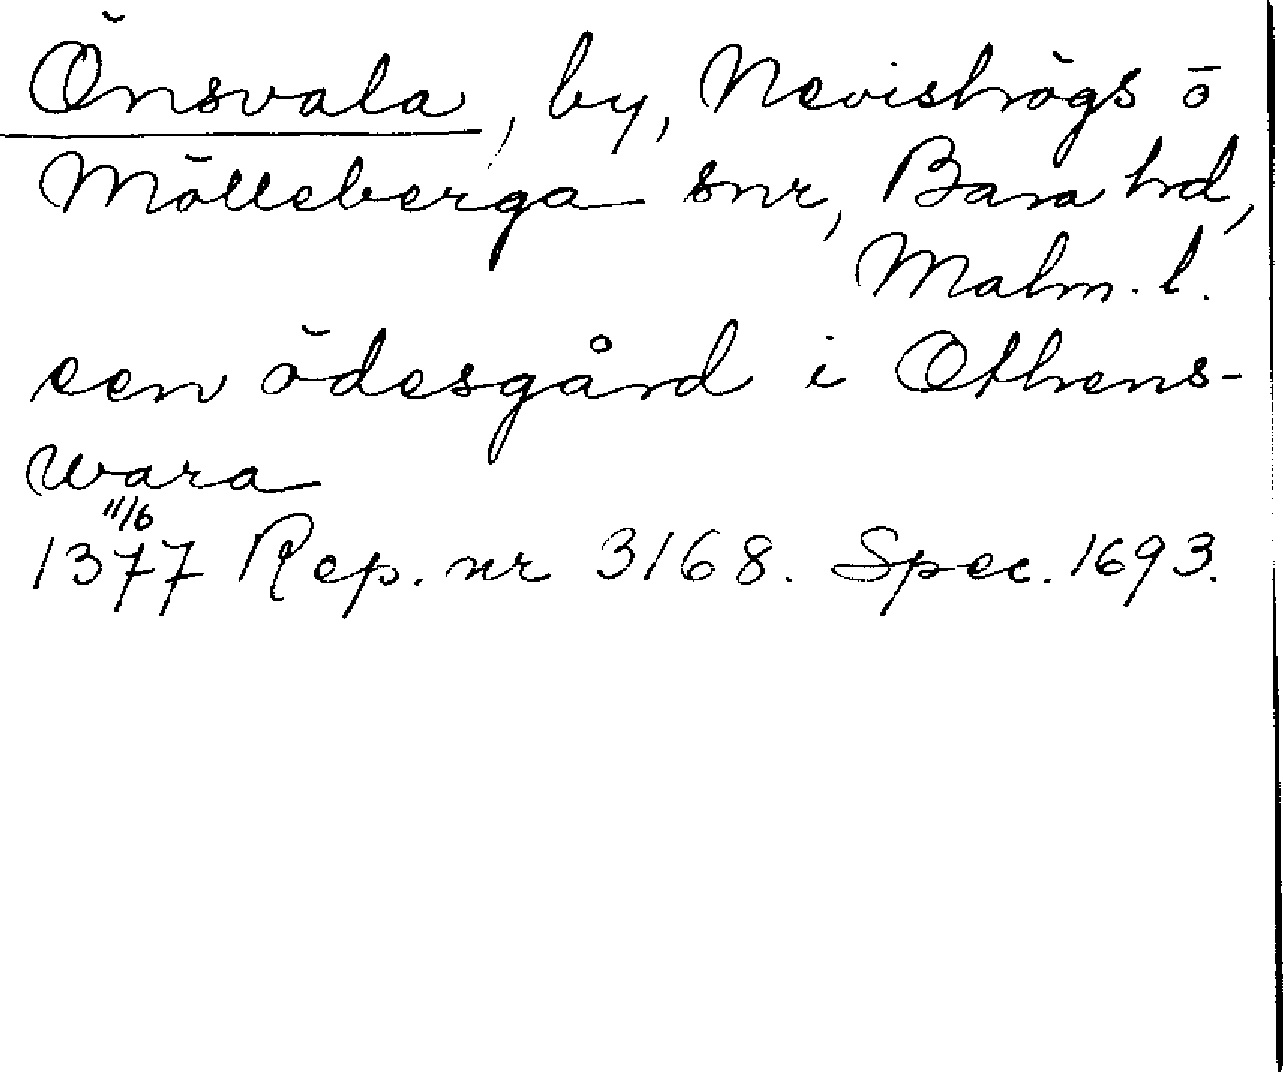 Önsvala, by, Nevishögs o
Mölleberga snr, Bara hd,
Malm. l.
een ödesgård i Othens-
wara
11/6
1377 Rep. nr 3168. Spec. 1693.